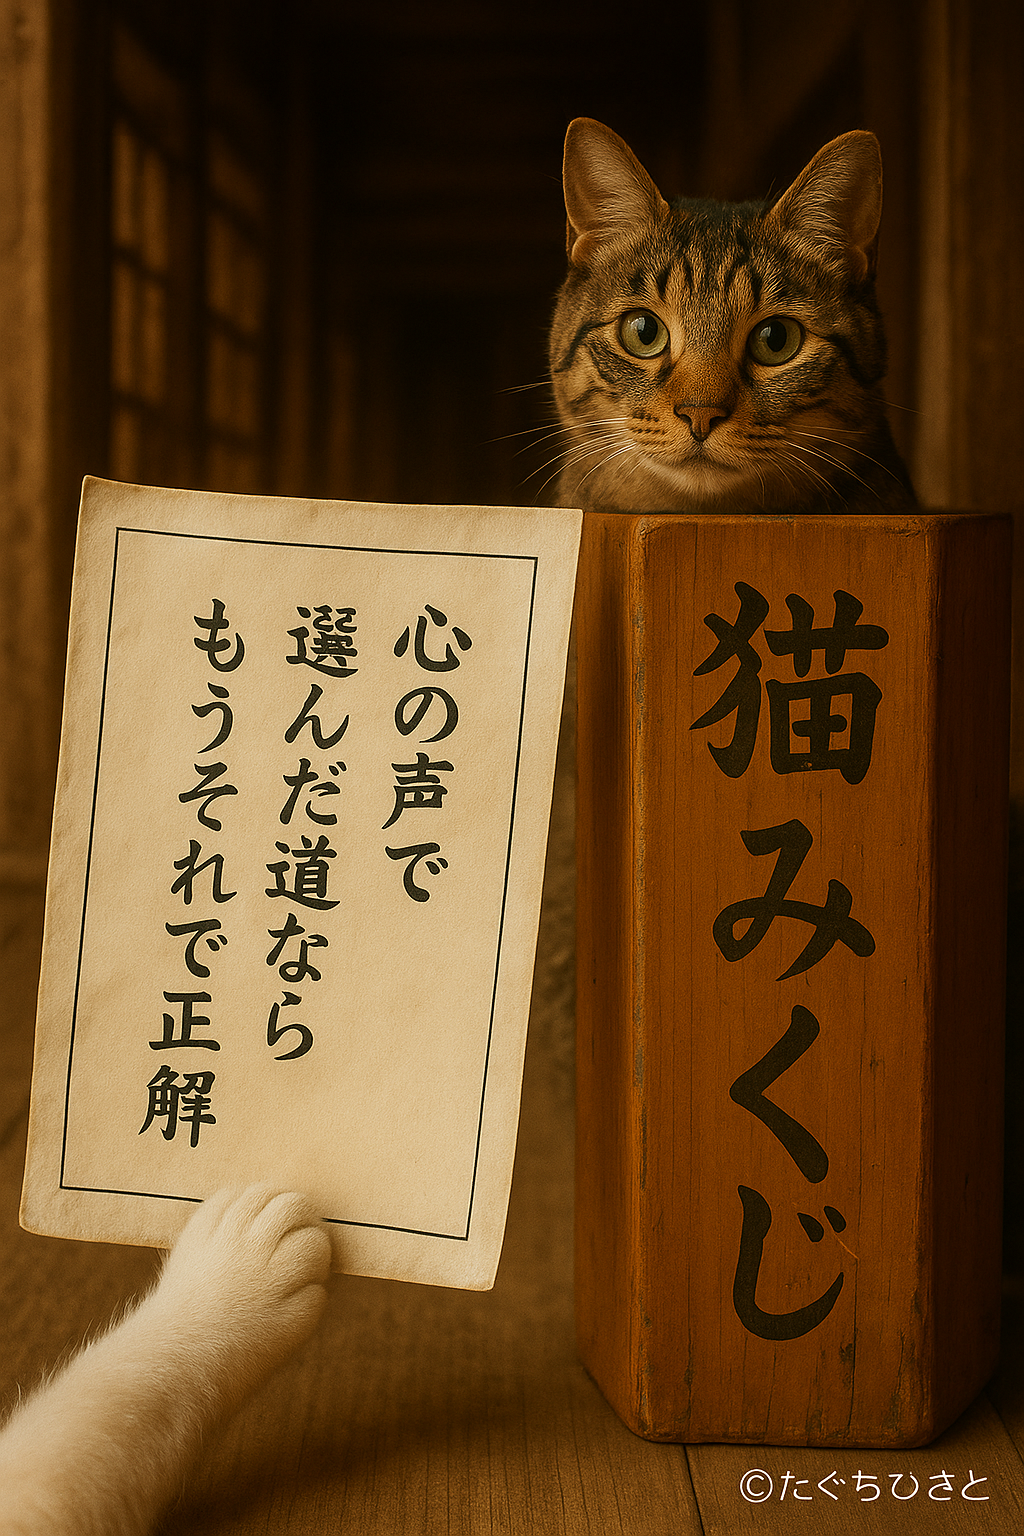 心の声で
選んだ道なら
もうそれで正解
猫みくじ
©たぐちひさと